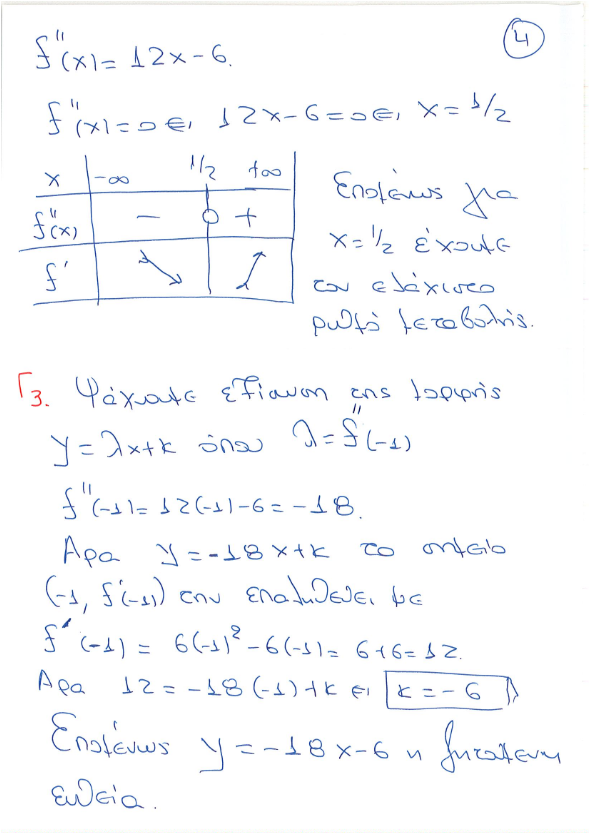 4
f''(x) = 12x - 6.
f''(x) = 0 ⇔ 12x - 6 = 0 ⇔ x = 1/2
x -∞ 1/2 +∞
f''(x) - 0 +
f' ↘ ↗
Επομένως για
x = 1/2 έχουμε
τον ελάχιστο
ρυθμό μεταβολής.
Γ3. Ψάχνουμε εξίσωση της μορφής
y = λx + κ όπου λ = f''(-1)
f''(-1) = 12(-1) - 6 = -18.
Αρα y = -18x + κ το σημείο
(-1, f'(-1)) την επαληθεύει με
f'(-1) = 6(-1)² - 6(-1) = 6 + 6 = 12.
Αρα 12 = -18(-1) + κ ⇔ κ = -6
Επομένως y = -18x - 6 η ζητούμενη
ευθεία.